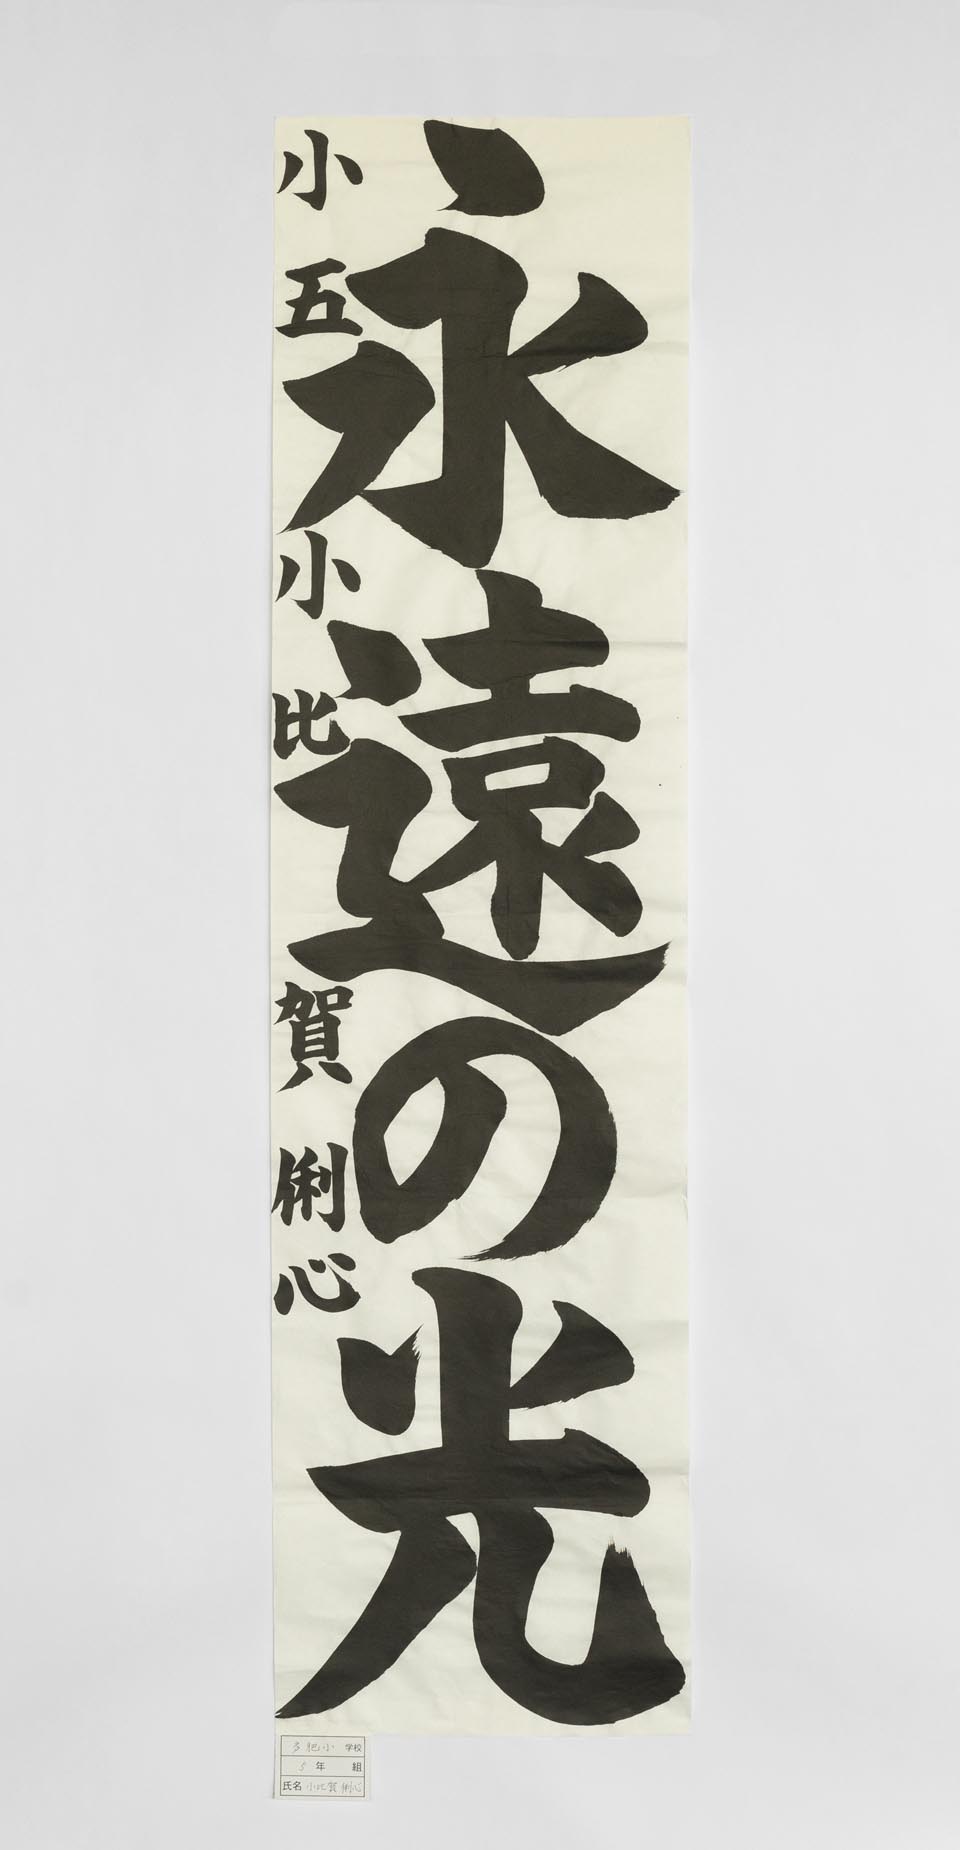 永遠の光
小五 小比賀 俐心
多肥小 学校
5 年 組
氏名 小比賀 俐心